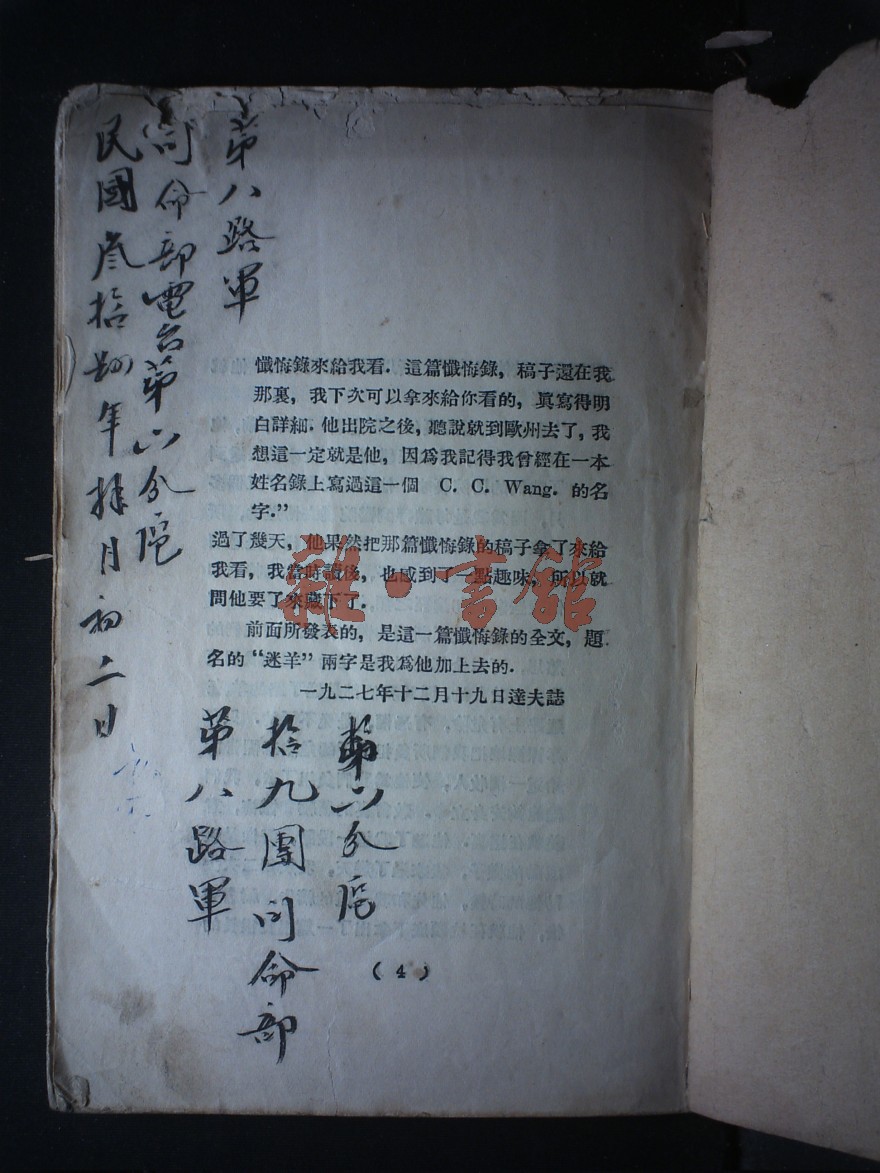 第八路軍
司命部電台第六分
民國叁拾年月初二日
懺悔錄來給我看．這篇懺悔錄，稿子還在我
那裏，我下次可以拿來給你看的，眞寫得明
白詳細．他出院之後，聽說就到歐州去了，我
想這一定就是他，因爲我記得我曾經在一本
姓名錄上寫過這一個 C. C. Wang. 的名
字．”
過了幾天，他果然把那篇懺悔錄的稿子拿了來給
我看，我當時讀後，也感到了一點趣味，所以就
問他要了來藏下了．
前面所發表的，是這一篇懺悔錄的全文，題
名的“迷羊”兩字是我爲他加上去的．
一九二七年十二月十九日達夫誌
雜·書館
第六分
拾九團司命部
第八路軍
(4)